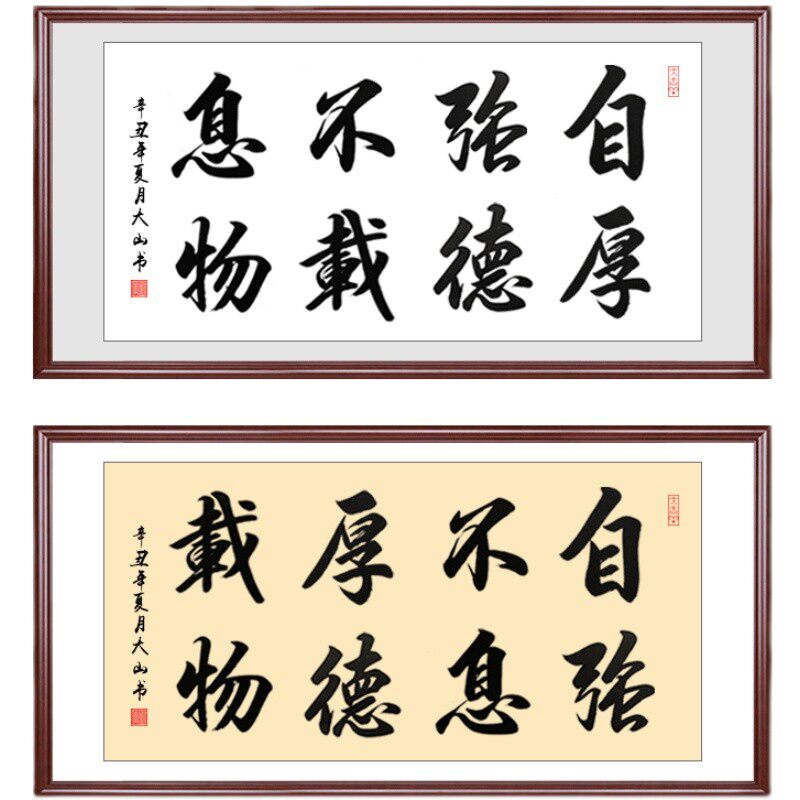 自强不息
厚德載物
辛丑年夏月大山书
自强
不息
厚德
載物
辛丑年夏月大山书